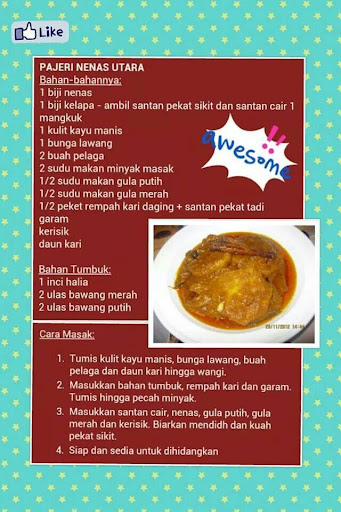 Like
PAJERI NENAS UTARA
Bahan-bahannya:
1 biji nenas
1 biji kelapa - ambil santan pekat sikit dan santan cair 1
mangkuk
1 kulit kayu manis
1 bunga lawang
2 buah pelaga
2 sudu makan minyak masak
1/2 sudu makan gula putih
1/2 sudu makan gula merah
1/2 peket rempah kari daging + santan pekat tadi
garam
kerisik
daun kari
awesome!!
Bahan Tumbuk:
1 inci halia
2 ulas bawang merah
2 ulas bawang putih
Cara Masak:
1. Tumis kulit kayu manis, bunga lawang, buah
pelaga dan daun kari hingga wangi.
2. Masukkan bahan tumbuk, rempah kari dan garam.
Tumis hingga pecah minyak.
3. Masukkan santan cair, nenas, gula putih, gula
merah dan kerisik. Biarkan mendidh dan kuah
pekat sikit.
4. Siap dan sedia untuk dihidangkan